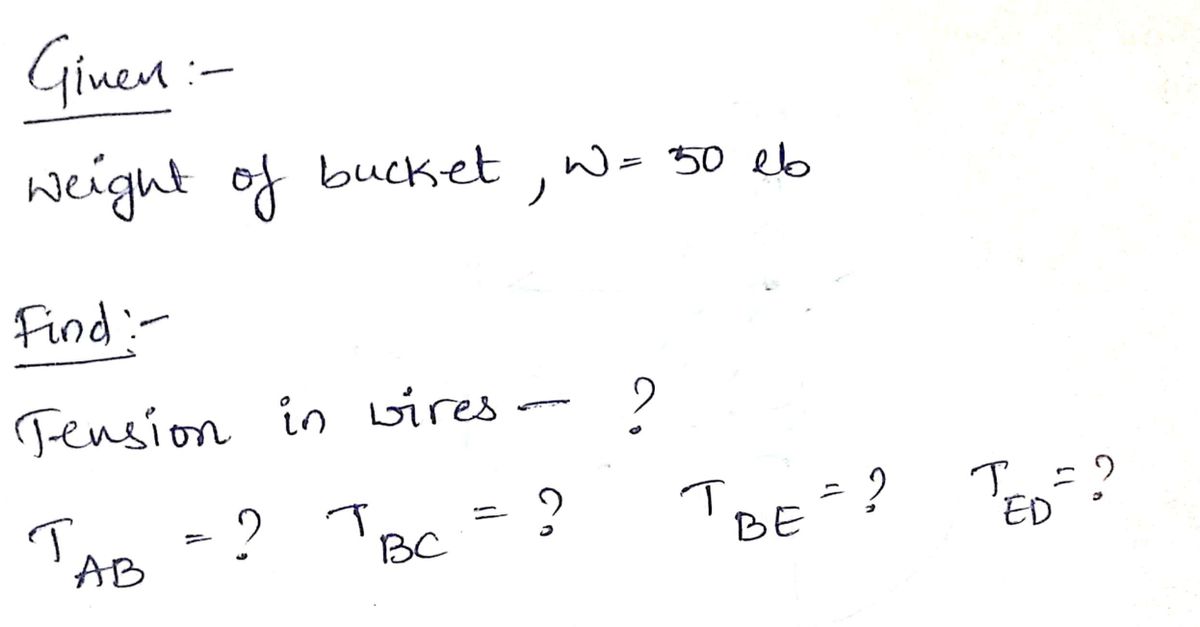 Given :-
Weight of bucket, W = 50 lb
Find :-
Tension in wires - ?
T_AB = ? T_BC = ? T_BE = ? T_ED = ?